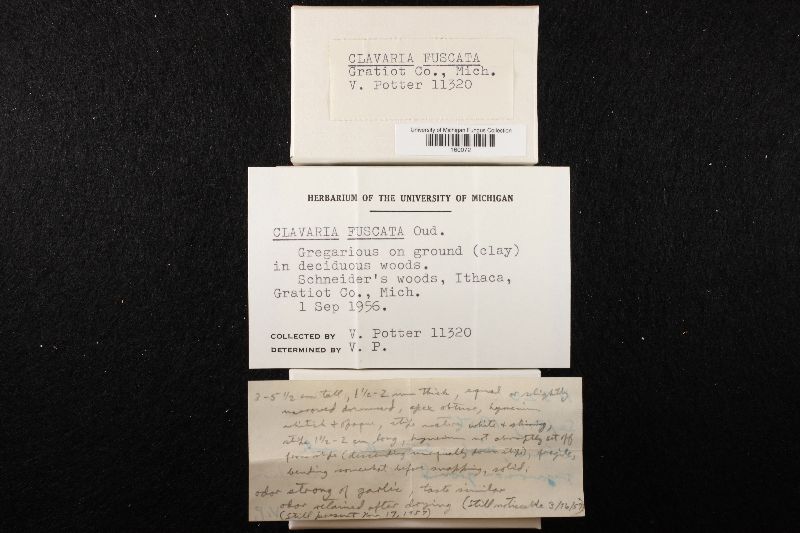 CLAVARIA FUSCATA
Gratiot Co., Mich.
V. Potter 11320
University of Michigan Fungus Collection
160072
HERBARIUM OF THE UNIVERSITY OF MICHIGAN
CLAVARIA FUSCATA Oud.
Gregarious on ground (clay)
in deciduous woods.
Schneider's woods, Ithaca,
Gratiot Co., Mich.
1 Sep 1956.
COLLECTED BY V. Potter 11320
DETERMINED BY V. P.
3-5 1/2 cm tall, 1 1/2-2 mm thick, equal or slightly
narrowed downward, apex obtuse, hymenium
whitish & opaque, stipe watery white & shining,
stipe 1 1/2-2 cm long, hymenium not abruptly cut off
from stipe (descending unequally down stipe), fragile,
bending somewhat before snapping, solid.
odor strong of garlic, taste similar
odor retained after drying (still noticeable 3/16/57)
(still present Nov 17, 1957)